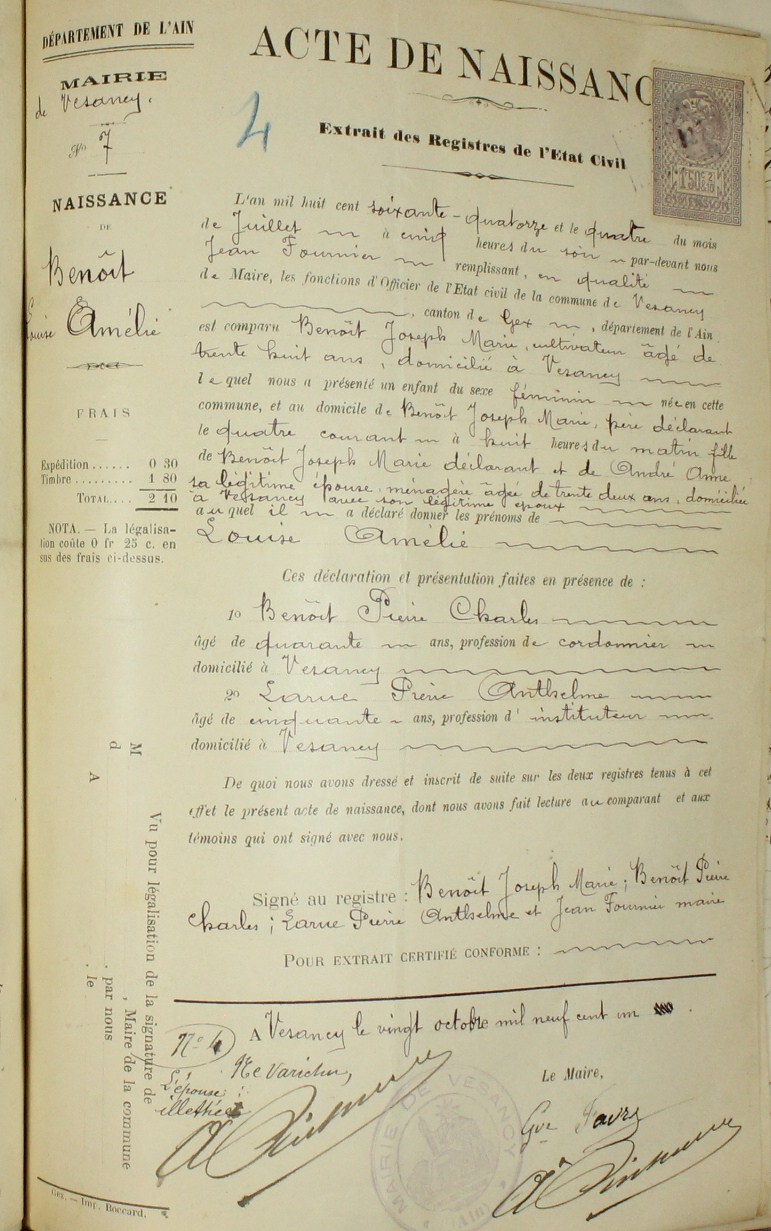 DÉPARTEMENT DE L'AIN
MAIRIE
de Vesancy.
No 7
NAISSANCE
DE
Benoît
Louise Amélie
FRAIS
Expédition ...... 0 30
Timbre ......... 1 80
TOTAL.... 2 10
NOTA. — La légalisa-
tion coûte 0 fr 25 c. en
sus des frais ci-dessus.
ACTE DE NAISSANC
4
Extrait des Registres de l'Etat Civil
1F50C 2/10
DIMENSION
L'an mil huit cent soixante-quatorze et le quatre du mois
de Juillet à cinq heures du soir par-devant nous
Jean Fournier remplissant, en qualité
de Maire, les fonctions d'Officier de l'Etat civil de la commune de Vesancy
, canton de Gex , département de l'Ain
est comparu Benoît Joseph Marie, cultivateur âgé de
trente huit ans, domicilié à Vesancy
lequel nous a présenté un enfant du sexe féminin née en cette
commune, et au domicile de Benoît Joseph Marie, père déclarant
le quatre courant à huit heures du matin fille
de Benoît Joseph Marie déclarant et de André Anne
sa légitime épouse, ménagère âgée de trente deux ans, domiciliée
à Vesancy avec son légitime époux
auquel il a déclaré donner les prénoms de
Louise Amélie
Ces déclaration et présentation faites en présence de :
1o Benoît Pierre Charles
âgé de quarante ans, profession de cordonnier
domicilié à Vesancy
2o Larue Pierre Anthelme
âgé de cinquante ans, profession d'instituteur
domicilié à Vesancy
De quoi nous avons dressé et inscrit de suite sur les deux registres tenus à cet
effet le présent acte de naissance, dont nous avons fait lecture au comparant et aux
témoins qui ont signé avec nous.
Signé au registre : Benoît Joseph Marie; Benoît Pierre
Charles; Larue Pierre Anthelme et Jean Fournier maire
POUR EXTRAIT CERTIFIÉ CONFORME :
A Vesancy le vingt octobre mil neuf cent un
No 4
Ne Varietur,
L'épouse :
illettrée
Le Maire,
Gve Favre
MAIRIE DE VESANCY
(Ain)
Vu pour légalisation de la signature de
M , Maire de la commune
d . par nous
A . le
Gex. — Imp. Boccard.